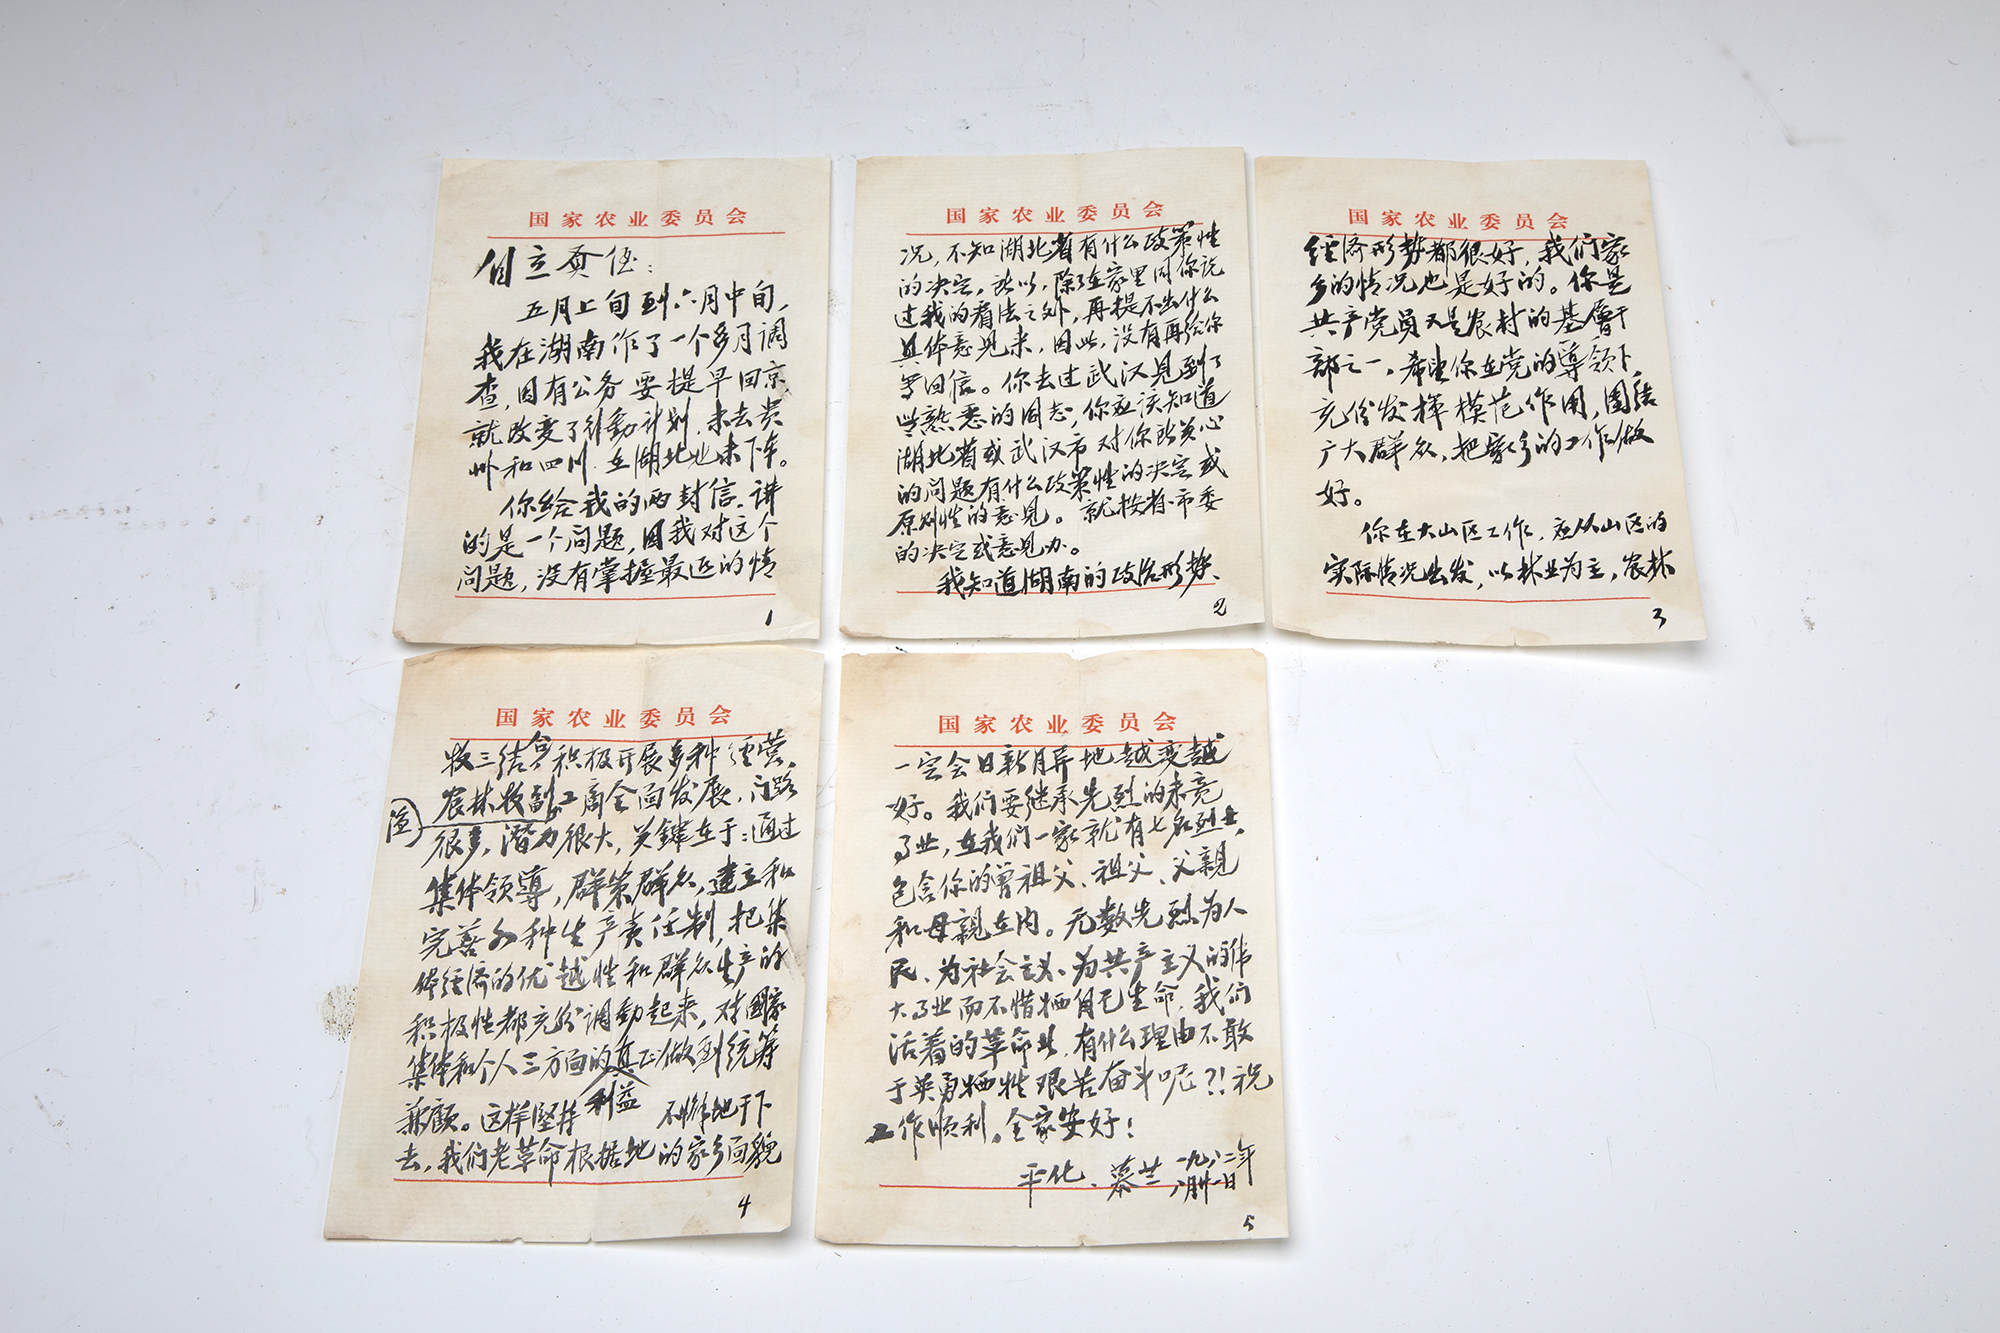 国家农业委员会
自立贡侄：
五月上旬到六月中旬，
我在湖南作了一个多月调
查，因有公务要提早回京，
就改变了行動计划，未去贵
州和四川，在湖北也未下车。
你给我的两封信，讲
的是一个问题，因我对这个
问题，没有掌握最近的情
1
国家农业委员会
况，不知湖北省有什么政策性
的决定。所以，除了在家里同你说
过我的看法之外，再提不出什么
具体意见来，因此，没有再给你
写回信。你去过武汉见到了
些熟悉的同志，你应该知道
湖北省或武汉市对你所关心
的问题有什么政策性的决定或
原则性的意见。就按省、市委
的决定或意见办。
我知道湖南的政治形势、
2
国家农业委员会
经济形势都很好，我们家
乡的情况也是好的。你是
共产党员又是农村的基層干
部之一，希望你在党的導领下，
充份发挥模范作用，团结
广大群众，把家乡的工作做
好。
你在大山区工作，应从山区的
实际情况出发，以林业为主，农林
3
国家农业委员会
牧三结合，积极开展多种经营，
农林牧副渔工商全面发展，门路
很多，潜力很大，关鍵在于：通过
集体领導，群策群众，建立和
完善各种生产责任制，把集
体经济的优越性和群众生产的
积极性都充分调動起来，对国家
集体和个人三方面的利益真正做到统筹
兼顾。这样坚持不懈地干下
去，我们老革命根据地的家乡面貌
4
国家农业委员会
一定会日新月异地越变越
好。我们要继承先烈的未竟
事业，在我们一家就有七名烈士，
包含你的曾祖父、祖父、父親
和母親在内。无数先烈为人
民、为社会主义、为共产主义的伟
大事业而不惜牺自己生命，我们
活着的革命者，有什么理由不敢
于英勇牺牲艰苦奋斗呢？！祝
工作顺利。全家安好！
平化、慕兰 一九八二年
八月廿一日
5